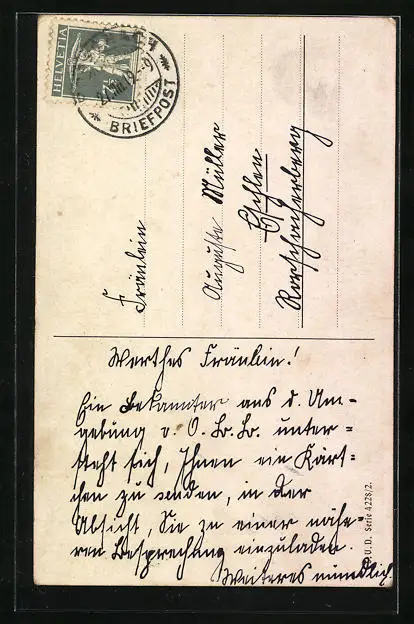 HELVETIA
BRIEFPOST
Fräulein
Auguste Müller
Eschlen
Rorschacherberg
Werthes Fräulein!
Ein Bekannter aus d. Um-
gebung v. O. Br. Br. unter-
steht sich, Ihnen ein Kärt-
chen zu senden, in der
Absicht, Sie zu einer nähe-
ren Besprechung einzuladen.
Weiteres mündlich.
U. D. Serie 4228/2.